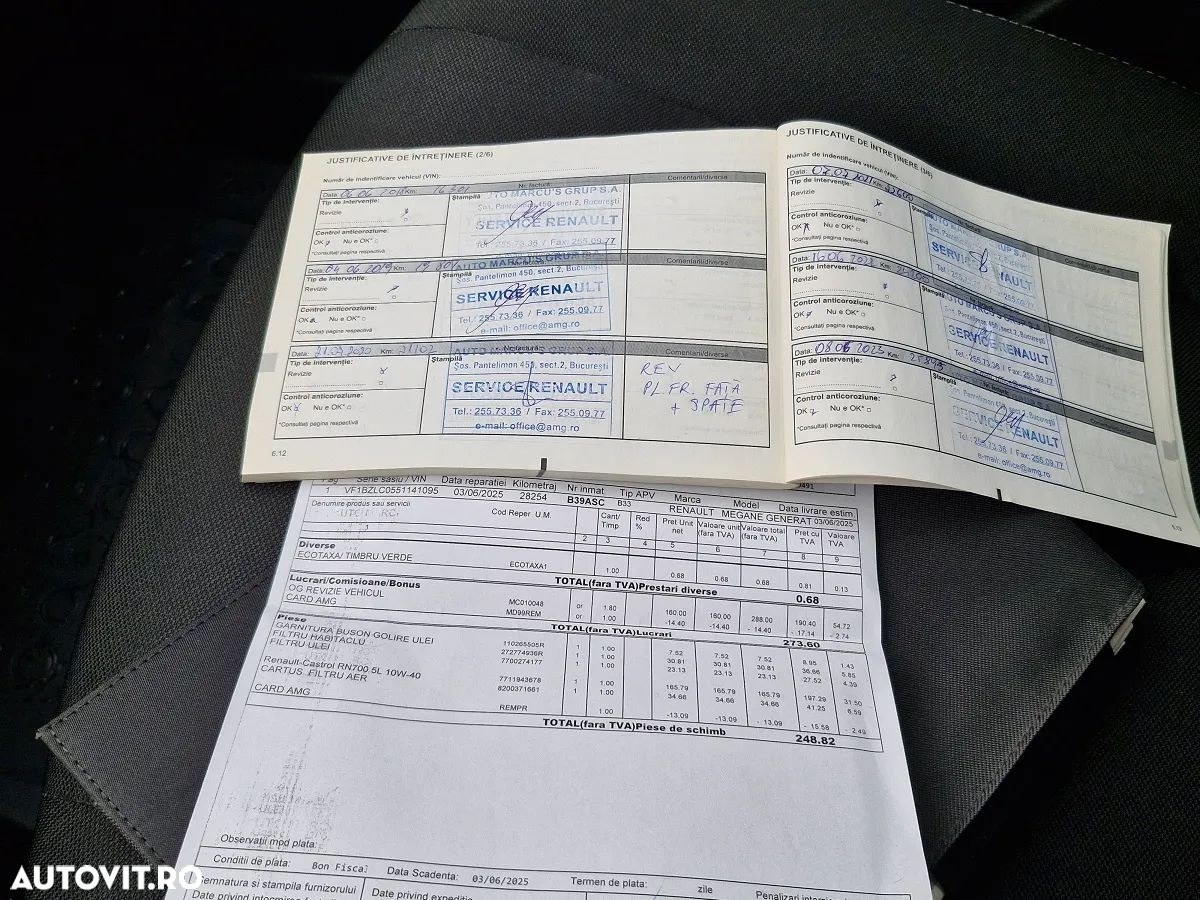 JUSTIFICATIVE DE ÎNTREȚINERE (2/6)
Număr de identificare vehicul (VIN):
Data: 06 06 2018 Km: 16 301 Nr. factură: Comentarii/diverse
Tip de intervenție: Ștampilă
Revizie
Control anticoroziune:
OK Nu e OK*
*Consultați pagina respectivă
AUTO MARCU'S GRUP S.A.
Șos. Pantelimon 450, sect.2, București
SERVICE RENAULT
Tel.: 255.73.36 / Fax: 255.09.77
Data: 04 06 2019 Km: Nr. factură: Comentarii/diverse
Tip de intervenție: Ștampilă
Revizie
Control anticoroziune:
OK Nu e OK*
*Consultați pagina respectivă
AUTO MARCU'S GRUP S.A.
Șos. Pantelimon 450, sect.2, București
SERVICE RENAULT
Tel.: 255.73.36 / Fax: 255.09.77
e-mail: office@amg.ro
Data: 21 07 2020 Km: 21102 Nr. factură: Comentarii/diverse
Tip de intervenție: Ștampilă
Revizie
Control anticoroziune:
OK Nu e OK*
*Consultați pagina respectivă
Șos. Pantelimon 450, sect.2, București
SERVICE RENAULT
Tel.: 255.73.36 / Fax: 255.09.77
e-mail: office@amg.ro
REV
PL. FR. FAȚĂ
+ SPATE
6.12
JUSTIFICATIVE DE ÎNTREȚINERE (3/6)
Număr de identificare vehicul (VIN):
Data: 07.07 2021 Km: 23600 Comentarii/diverse
Tip de intervenție: Ștampilă
Revizie
Control anticoroziune:
OK Nu e OK*
*Consultați pagina respectivă
AUTO MARCU'S GRUP S.A.
Șos. Pantelimon 450, sect.2, București
SERVICE RENAULT
Tel.: 255.73.36 / Fax: 255.09.77
e-mail: office@amg.ro
Data: 16.06 2022 Km:
Tip de intervenție: Ștampilă
Revizie
Control anticoroziune:
OK Nu e OK*
*Consultați pagina respectivă
AUTO MARCU'S GRUP S.A.
Șos. Pantelimon 450, sect.2, București
SERVICE RENAULT
Tel.: 255.73.36 / Fax: 255.09.77
e-mail: office@amg.ro
Data: 08 06 2023 Km:
Tip de intervenție: Ștampilă
Revizie
Control anticoroziune:
OK Nu e OK*
*Consultați pagina respectivă
SERVICE RENAULT
Tel.: 255.73.36 / Fax: 255.09.77
e-mail: office@amg.ro
Pag Serie sasiu / VIN Data reparatiei Kilometraj Nr inmat Tip APV Marca Model Data livrare estim
1 VF1BZLC0551141095 03/06/2025 28254 B39ASC B33 RENAULT MEGANE GENERAT 03/06/2025
Denumire produs sau servicii Cod Reper U.M. Cant/Timp Red % Pret Unit net Valoare unit (fara TVA) Valoare total (fara TVA) Pret cu TVA Valoare TVA
1 2 3 4 5 6 7 8 9
Diverse
ECOTAXA/ TIMBRU VERDE ECOTAXA1 1.00 0.68 0.68 0.68 0.81 0.13
TOTAL(fara TVA)Prestari diverse 0.68
Lucrari/Comisioane/Bonus
OG REVIZIE VEHICUL MC010048 or 1.80 160.00 160.00 288.00 190.40 54.72
CARD AMG MD99REM or 1.00 -14.40 -14.40 -14.40 -17.14 -2.74
TOTAL(fara TVA)Lucrari 273.60
Piese
GARNITURA BUSON GOLIRE ULEI 110265505R 1 1.00 7.52 7.52 7.52 8.95 1.43
FILTRU HABITACLU 272774936R 1 1.00 30.81 30.81 30.81 36.66 5.85
FILTRU ULEI 7700274177 1 1.00 23.13 23.13 23.13 27.52 4.39
Renault-Castrol RN700 5L 10W-40 7711943678 1 1.00 165.79 165.79 165.79 197.29 31.50
CARTUS FILTRU AER 8200371661 1 1.00 34.66 34.66 34.66 41.25 6.59
CARD AMG REMPR 1.00 -13.09 -13.09 -13.09 -15.58 -2.49
TOTAL(fara TVA)Piese de schimb 248.82
Observații mod plata:
Conditii de plata: Bon Fiscal Data Scadenta: 03/06/2025 Termen de plata: / zile Penalizari
Semnatura si stampila furnizorului Date privind expeditia
AUTOVIT.RO